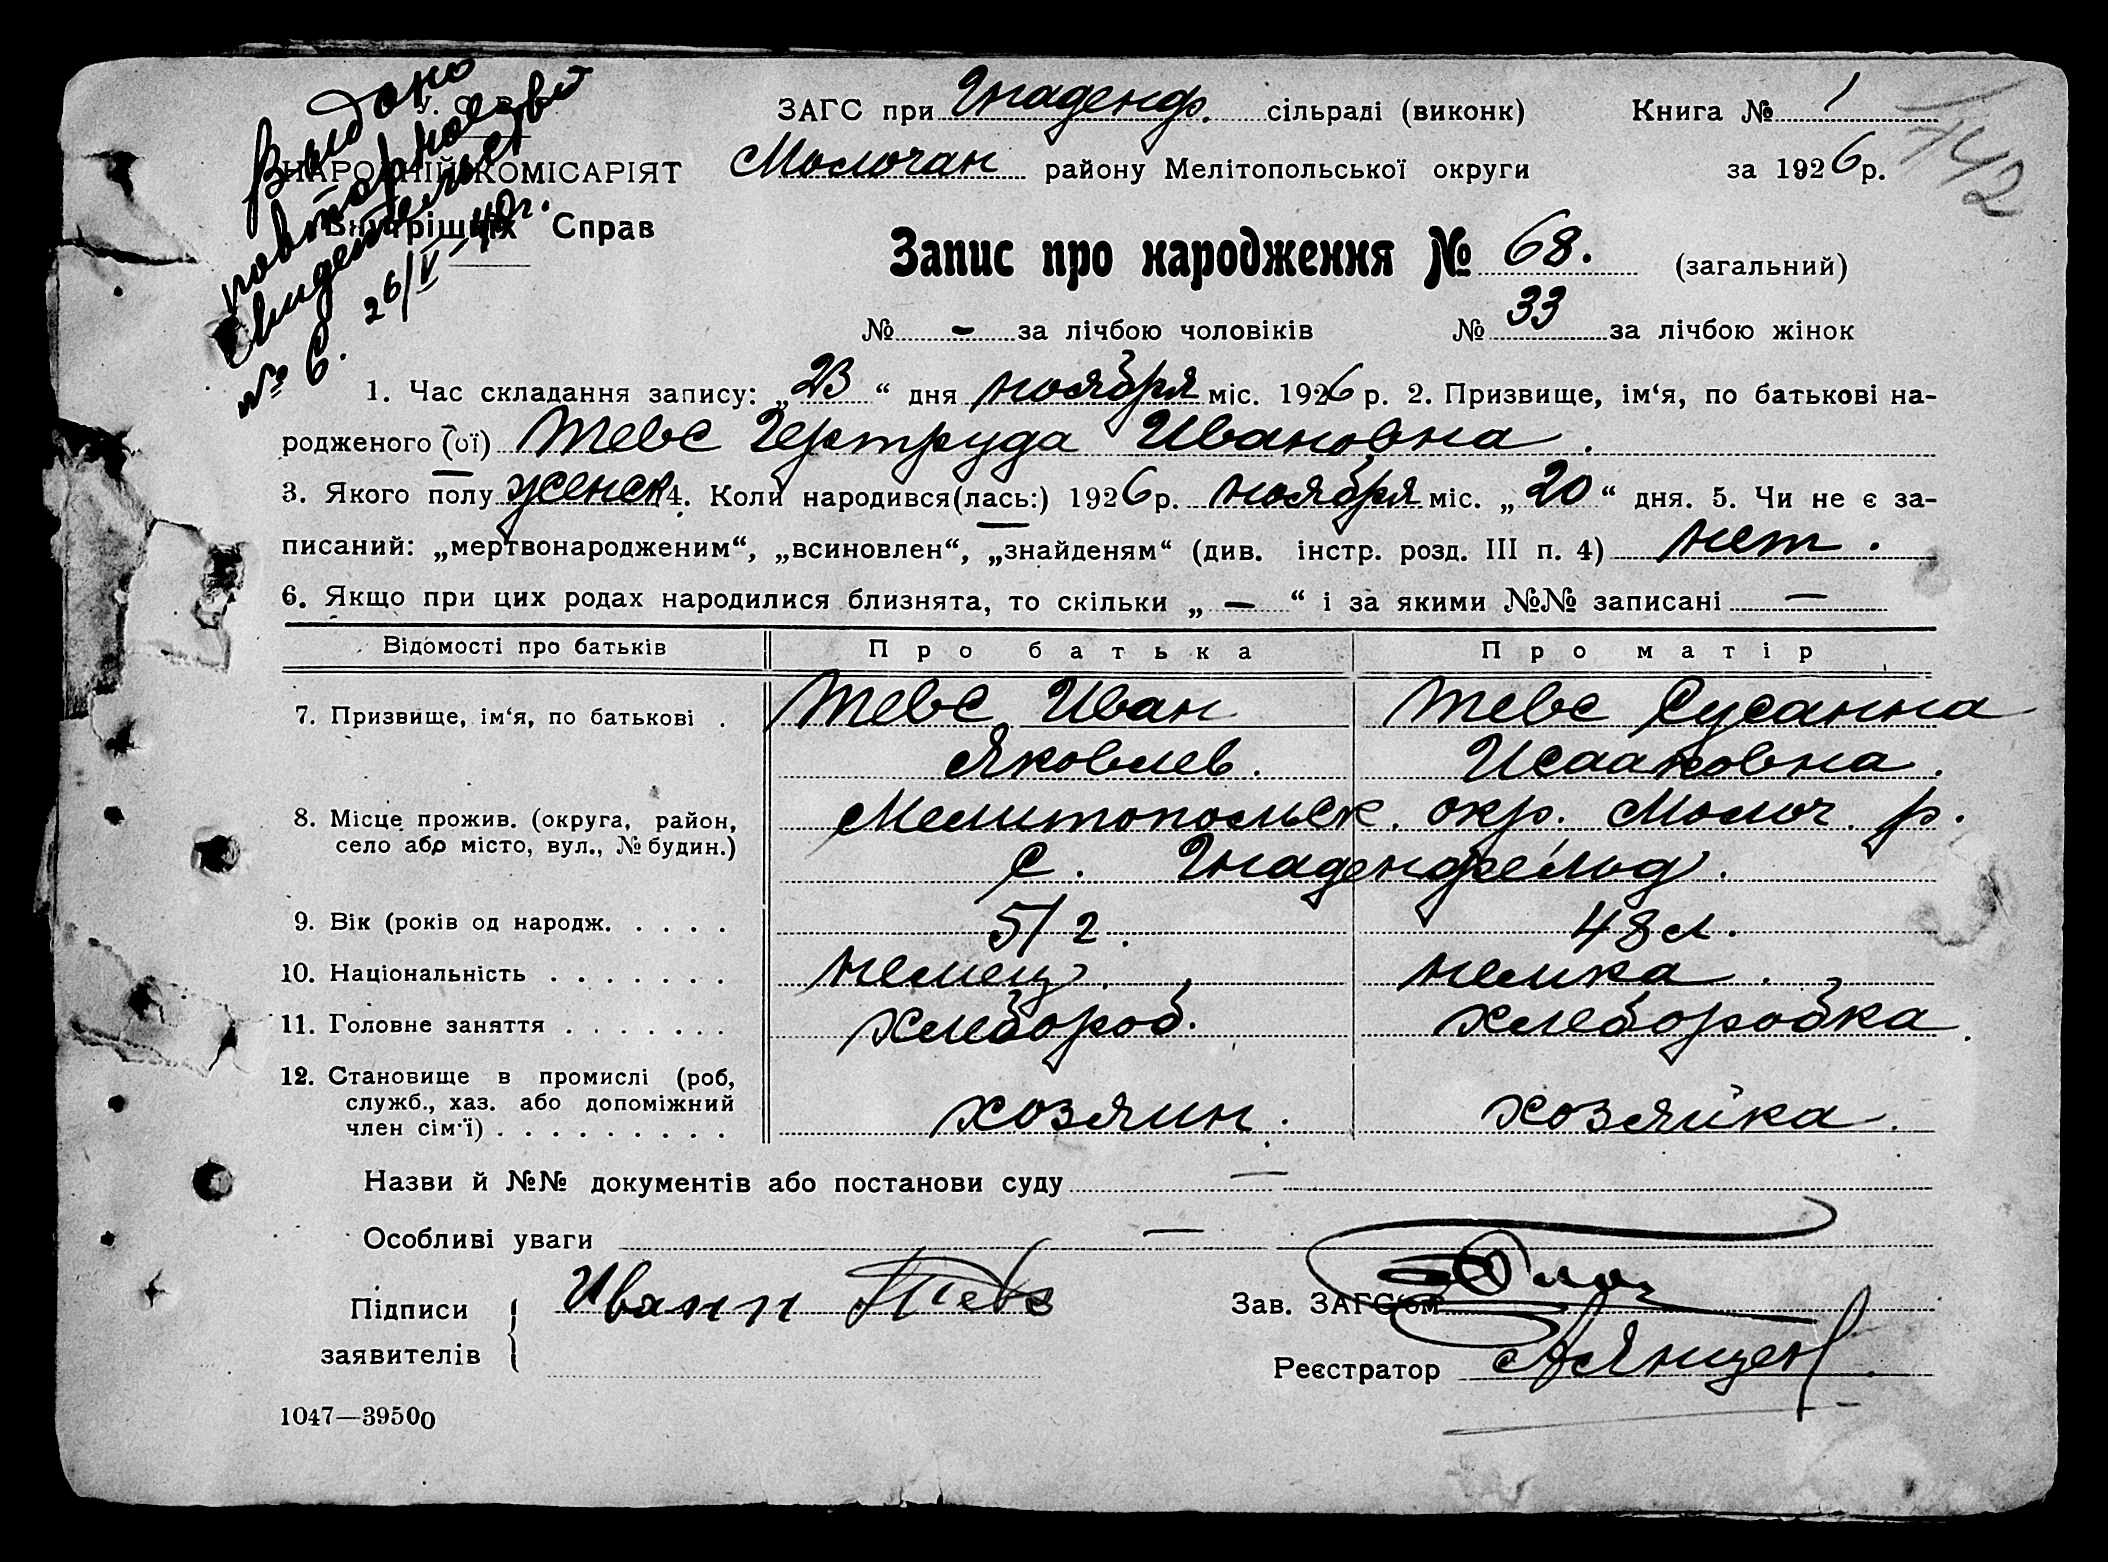 Выдано
повторное
свидетельство
№ 6. 26/V-40г.
У. С. Р. Р.
НАРОДНІЙ КОМІСАРІЯТ
Внутрішніх Справ
ЗАГС при Гнаденф. сільраді (виконк)
Молочан району Мелітопольської округи
Книга № 1
за 1926 р.
742
Запис про народження № 68. (загальний)
№ - за лічбою чоловіків № 33 за лічбою жінок
1. Час складання запису: „23“ дня ноября міс. 1926 р. 2. Призвище, ім‘я, по батькові на-
родженого (ої) Тевс Гертруда Ивановна.
3. Якого полу женск 4. Коли народився(лась:) 1926 р. ноября міс. „20“ дня. 5. Чи не є за-
писаний: „мертвонародженим“, „всиновлен“, „знайденям“ (див. інстр. розд. III п. 4) нет.
6. Якщо при цих родах народилися близнята, то скільки „ — “ і за якими №№ записані —
Відомості про батьків Про батька Про матір
7. Призвище, ім‘я, по батькові . Тевс Иван Тевс Сусанна
Яковлев. Исааковна.
8. Місце прожив. (округа, район, Мелитопольск. окр. Молоч. р.
село або місто, вул., № будин.) с. Гнаденфельд.
9. Вік (років од народж. . . . . 51 г. 48 л.
10. Національність . . . . . . . немец. немка.
11. Головне заняття . . . . . . . хлебороб. хлеборобка.
12. Становище в промислі (роб,
служб., хаз. або допоміжний
член сім‘ї) . . . . . . . . . хозяин. хозяйка.
Назви й №№ документів або постанови суду —
Особливі уваги —
Підписи
заявителів
Иванн Тевс
Зав. ЗАГС‘ом
Реєстратор А Янцен
1047—39500